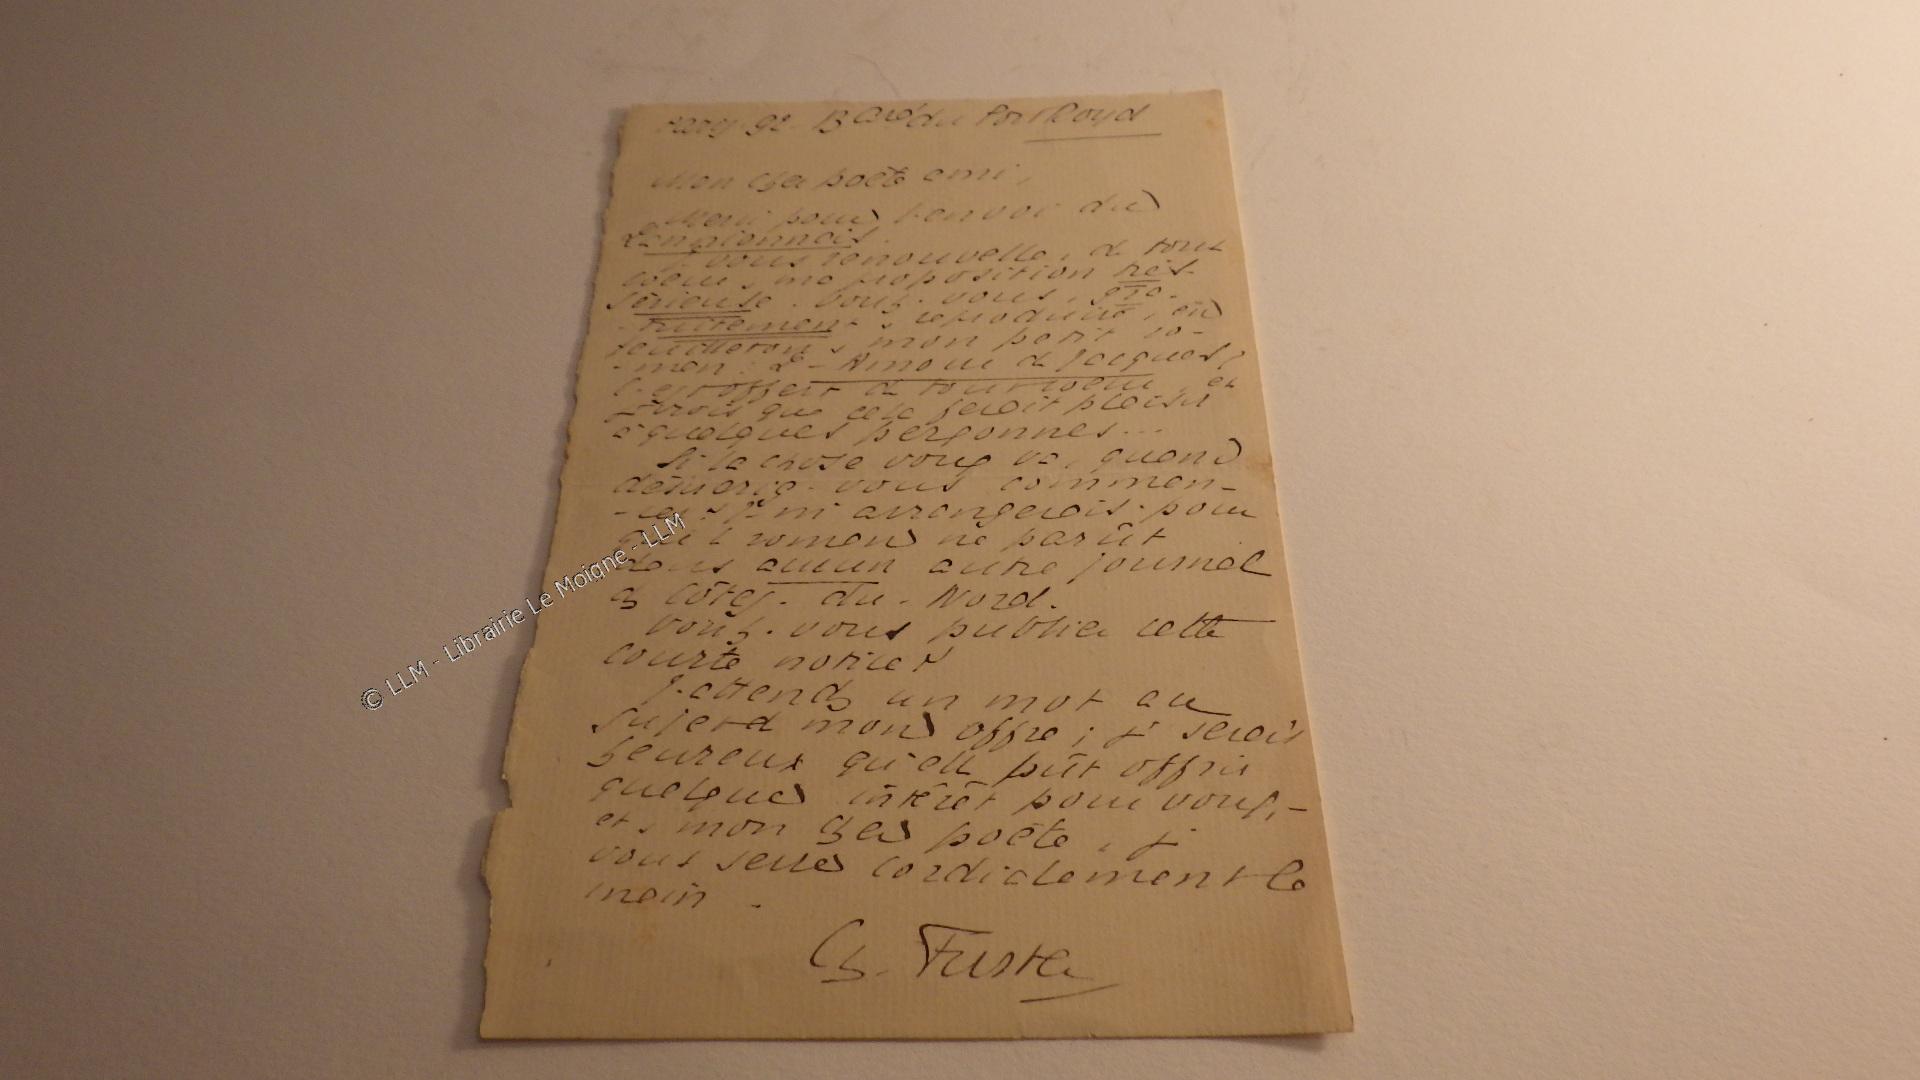 Paris. 92. Bard du Port Royal
Mon cher poète ami,
Merci pour l'envoi du
Lannionnais.
Je vous renouvelle, de tout
coeur, ma proposition très-
sérieuse. Voulez-vous, gra-
-tuitement, reproduire, en
feuilleton, mon petit ro-
-man: L'Amour de Jacques?
C'est offert de tout coeur, et
je crois que cela ferait plaisir
à quelques personnes...
Si la chose vous va, quand
désireriez-vous commen-
-cer? Je m'arrangerais pour
que le roman ne parût
dans aucun autre journal
des Côtes-du-Nord.
Voulez-vous publier cette
courte notice?
J'attends un mot au
sujet de mon offre; je serais
heureux qu'elle pût offrir
quelque intérêt pour vous,-
et, mon cher poète, je
vous serre cordialement la
main.
Ch. Fuster
© LLM - Librairie Le Moigne - LLM